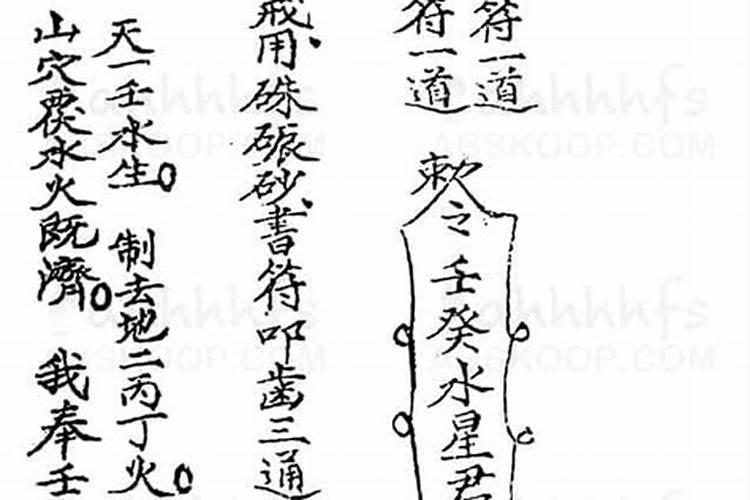 符一道
符一道
敕之壬癸水星君
戒用硃砂書符叩歯三通
天一壬水生○制去地二丙丁火○
山穴水火既濟○我奉壬
ahhhhfs
ABSKOOP.COM
ahhhhfs
ABSKOOP.COM
ahhhhfs
ABSKOOP.COM
ahhhhfs
ABSKOOP.COM